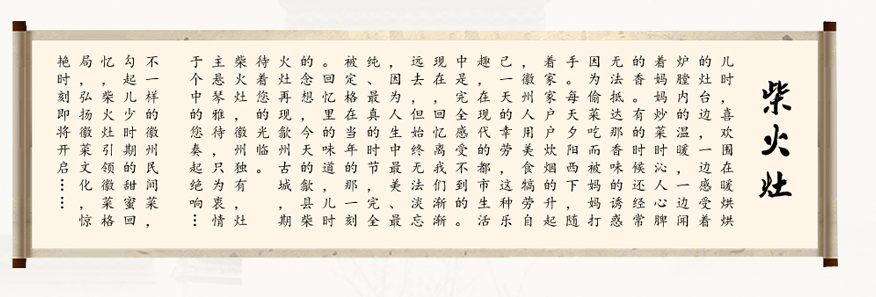 柴火灶
儿时，喜欢围在暖烘烘
的灶台边，一边感受着
炉膛内的温暖，一边闻
着妈妈炒菜时沁人心脾
的香。有的时候还经常
无法抵达那香味的诱惑
因为偷菜吃而被妈妈打
手。每天夕阳西下，随
着家家户户炊烟的升起
，徽州人用美食犒劳自
己，一天的幸劳，这种乐
趣，在现代的都市生活
中是完全感受不到的。
现在，回忆离我们渐渐
远去，但始终无法淡忘
，因为人生中最美、最
纯、最真的时节，完全
被定格在当年的那一刻
。回忆里的味道，儿时
的念想，今天的歙县柴
火灶再现歙州古城，期
待着您的光临。
柴火灶，徽州独有，灶
主悬琴雅待，只为衷情
于个中的您奏起绝响…
不一样的徽州民间菜，
勾起儿少时期的甜蜜回
忆，柴火灶引领徽菜格
局，弘扬徽菜文化，惊
艳时刻即将开启……